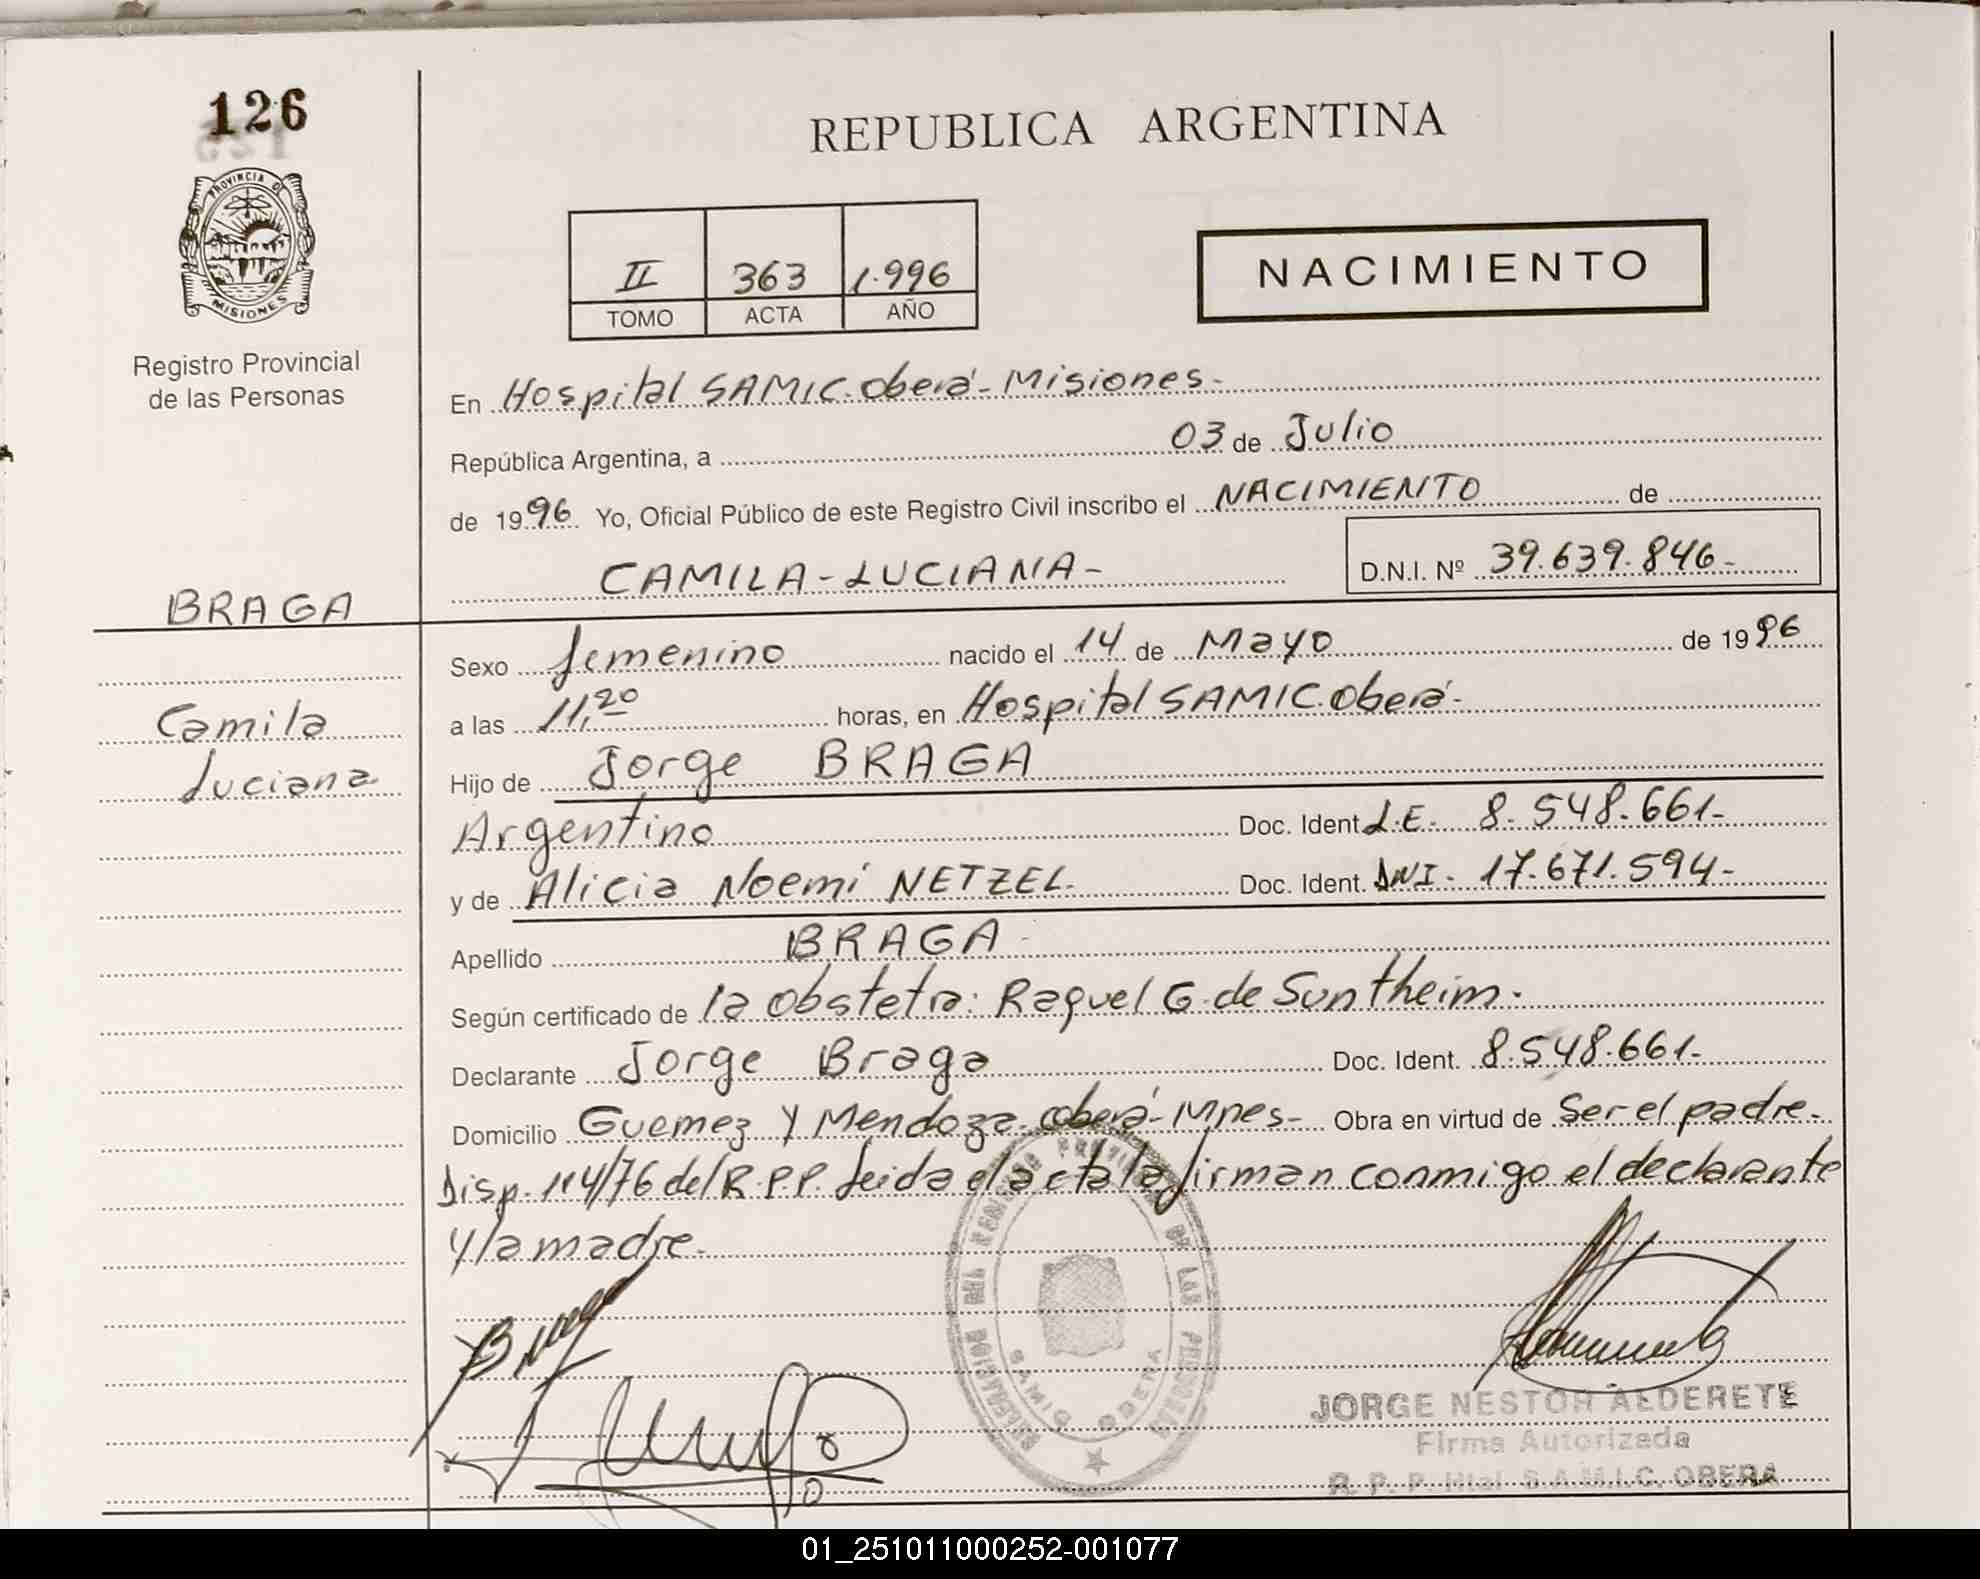 126
REPUBLICA ARGENTINA
PROVINCIA D
MISIONES
Registro Provincial
de las Personas
II 363 1.996
TOMO ACTA AÑO
NACIMIENTO
En Hospital SAMIC. Oberá - Misiones -
República Argentina, a 03 de Julio
de 1996. Yo, Oficial Público de este Registro Civil inscribo el NACIMIENTO de
CAMILA - LUCIANA -
D.N.I. Nº 39.639.846 -
BRAGA
Camila
Luciana
Sexo femenino nacido el 14 de Mayo de 1996
a las 11,20 horas, en Hospital SAMIC. Oberá -
Hijo de Jorge BRAGA
Argentino Doc. Ident L.E. 8.548.661 -
y de Alicia Noemí NETZEL. Doc. Ident. DNI. 17.671.594 -
Apellido BRAGA -
Según certificado de la obstetra: Raquel G. de Suntheim.
Declarante Jorge Braga Doc. Ident. 8.548.661 -
Domicilio Guemez y Mendoza - Oberá - Mnes - Obra en virtud de Ser el padre -
Disp. 114/76 del R.P.P. Leida el acta la firman conmigo el declarante
y la madre.
DE LAS
SAMIC OBERA
JORGE NESTOR ALDERETE
Firma Autorizada
R. P. P. Htal S.A.M.I.C. OBERA
01_251011000252-001077